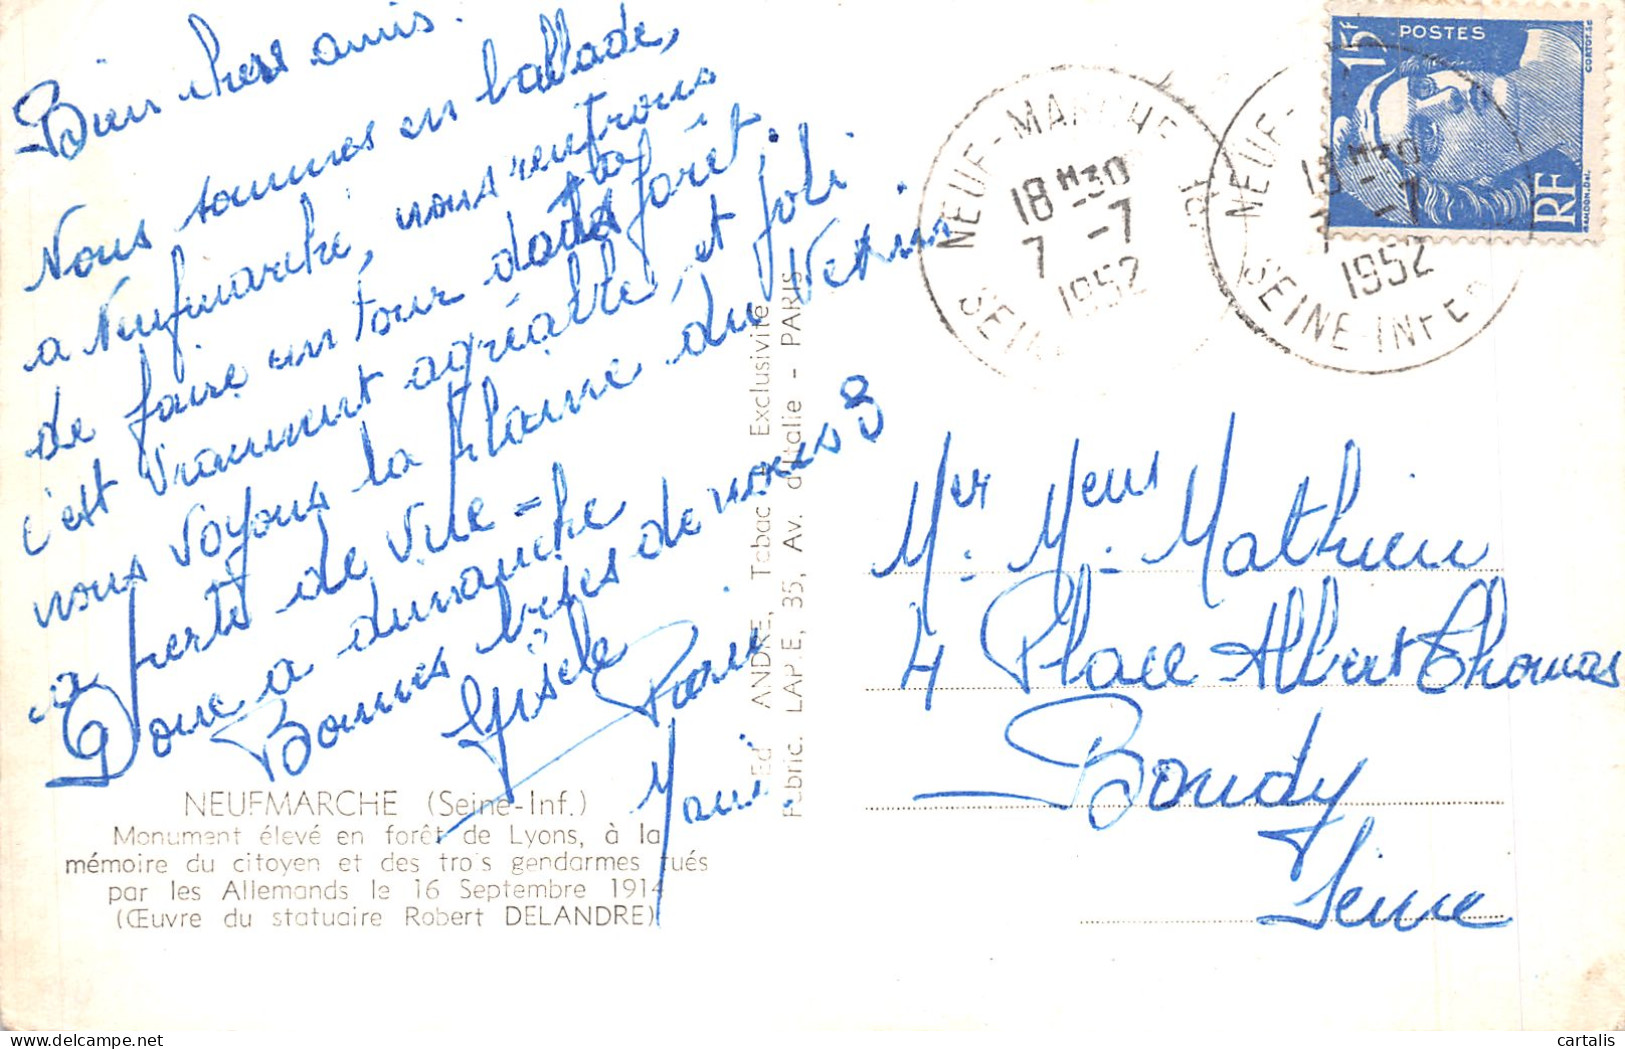 Bien chers amis.
Nous sommes en ballade,
a Neufmarché, nous rentrons
de faire un tour dans la forêt.
c'est vraiment agréable, et joli
nous voyons la plaine du Vexin
a perte de vue =
Donc a dimanche
Bonnes bises de nous 3
Gisèle
Pierre
NEUFMARCHE (Seine-Inf.)
Monument élevé en forêt de Lyons, à la
mémoire du citoyen et des trois gendarmes tués
par les Allemands le 16 Septembre 1914
(Œuvre du statuaire Robert DELANDRE)
Ed ANDRÉ, Tabac Exclusivité
Fabric. LAPIE, 35, Av. d'Italie - PARIS
NEUF-MARCHE
18 H30
7 -7
1952
SEIN
NEUF-
18 H30
7 -7
1952
SEINE-INFE
15F
POSTES
RF
CORTOT.SC
GANDON.Del.
Mer Meur
Mr. Me. Mathieu
4 Place Albert Thomas
Bondy
Seine
cartalis